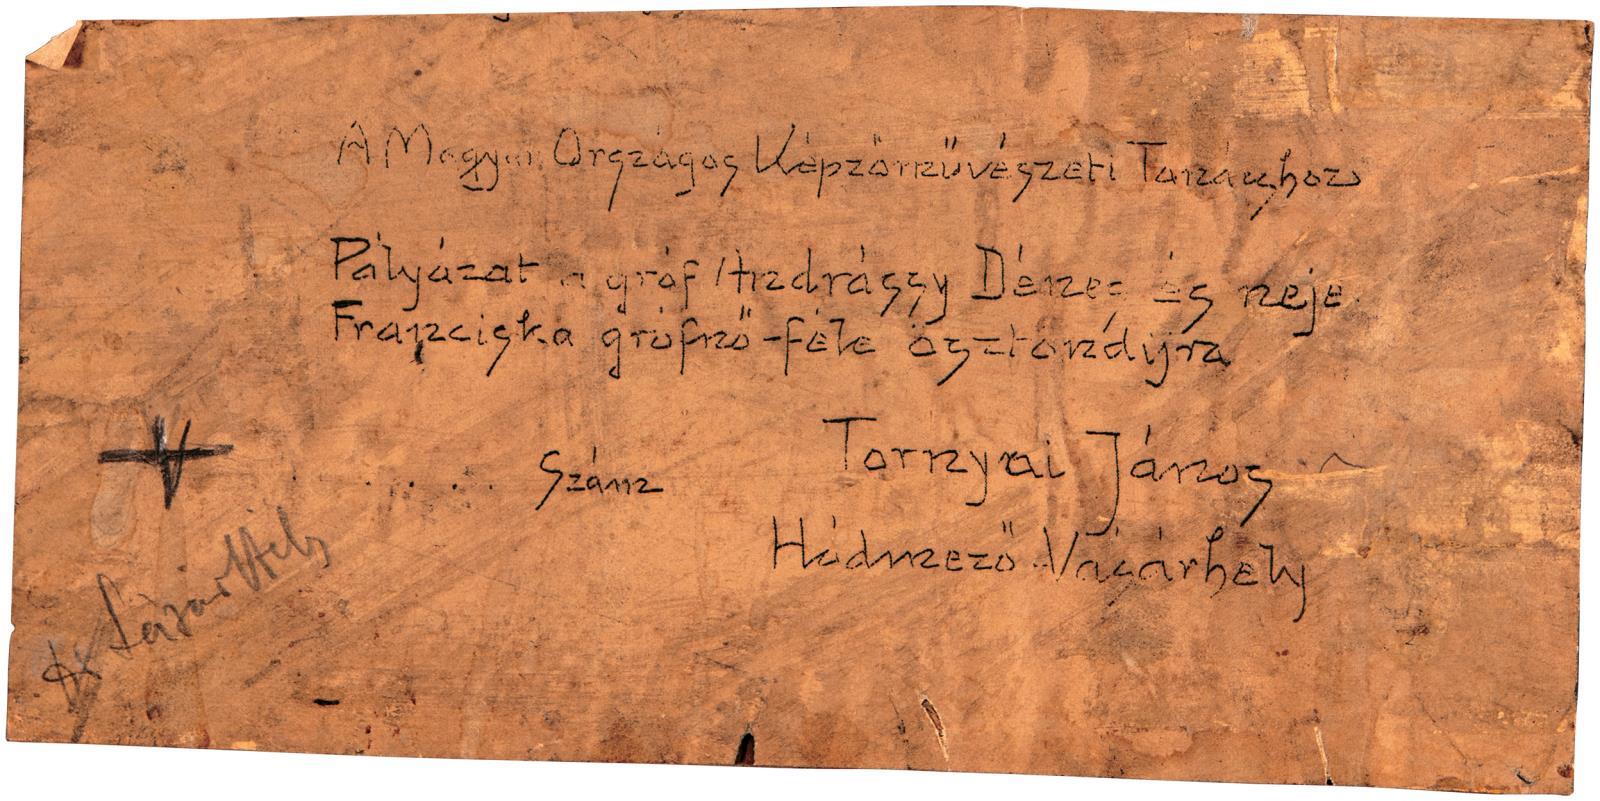 A Magyar Országos Képzőművészeti Tanácshoz
Pályázat a gróf Andrássy Dénes és neje
Franciska grófnő-féle ösztöndíjra
..... szám
Tornyai János
Hódmező-Vásárhely